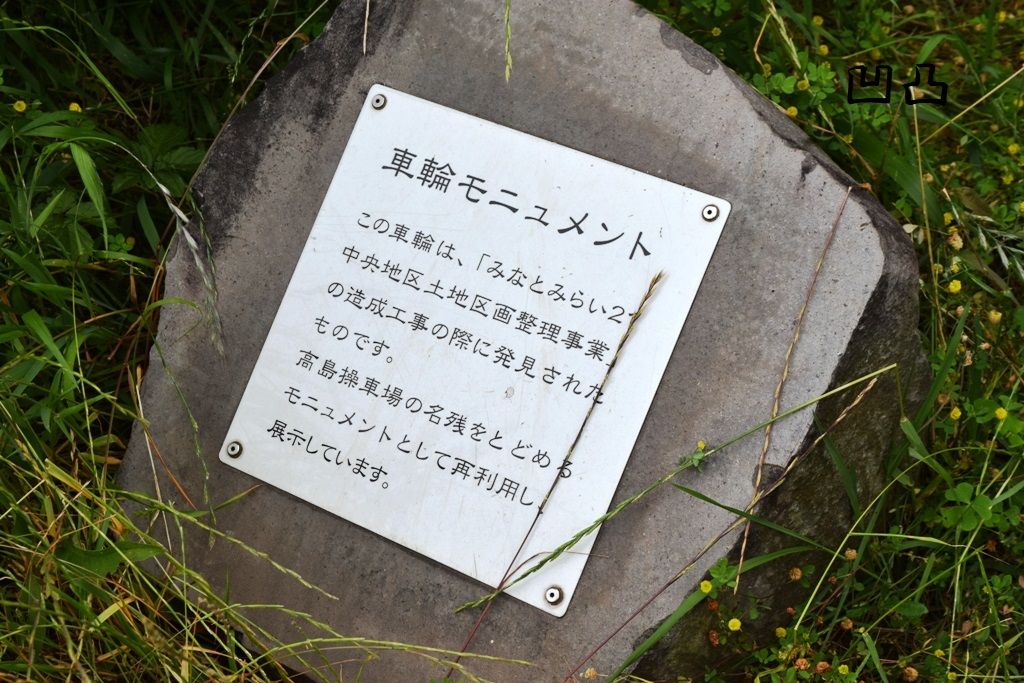 車輪モニュメント
この車輪は、「みなとみらい2
中央地区土地区画整理事業
の造成工事の際に発見された
ものです。
高島操車場の名残をとどめる
モニュメントとして再利用し、
展示しています。
凹凸